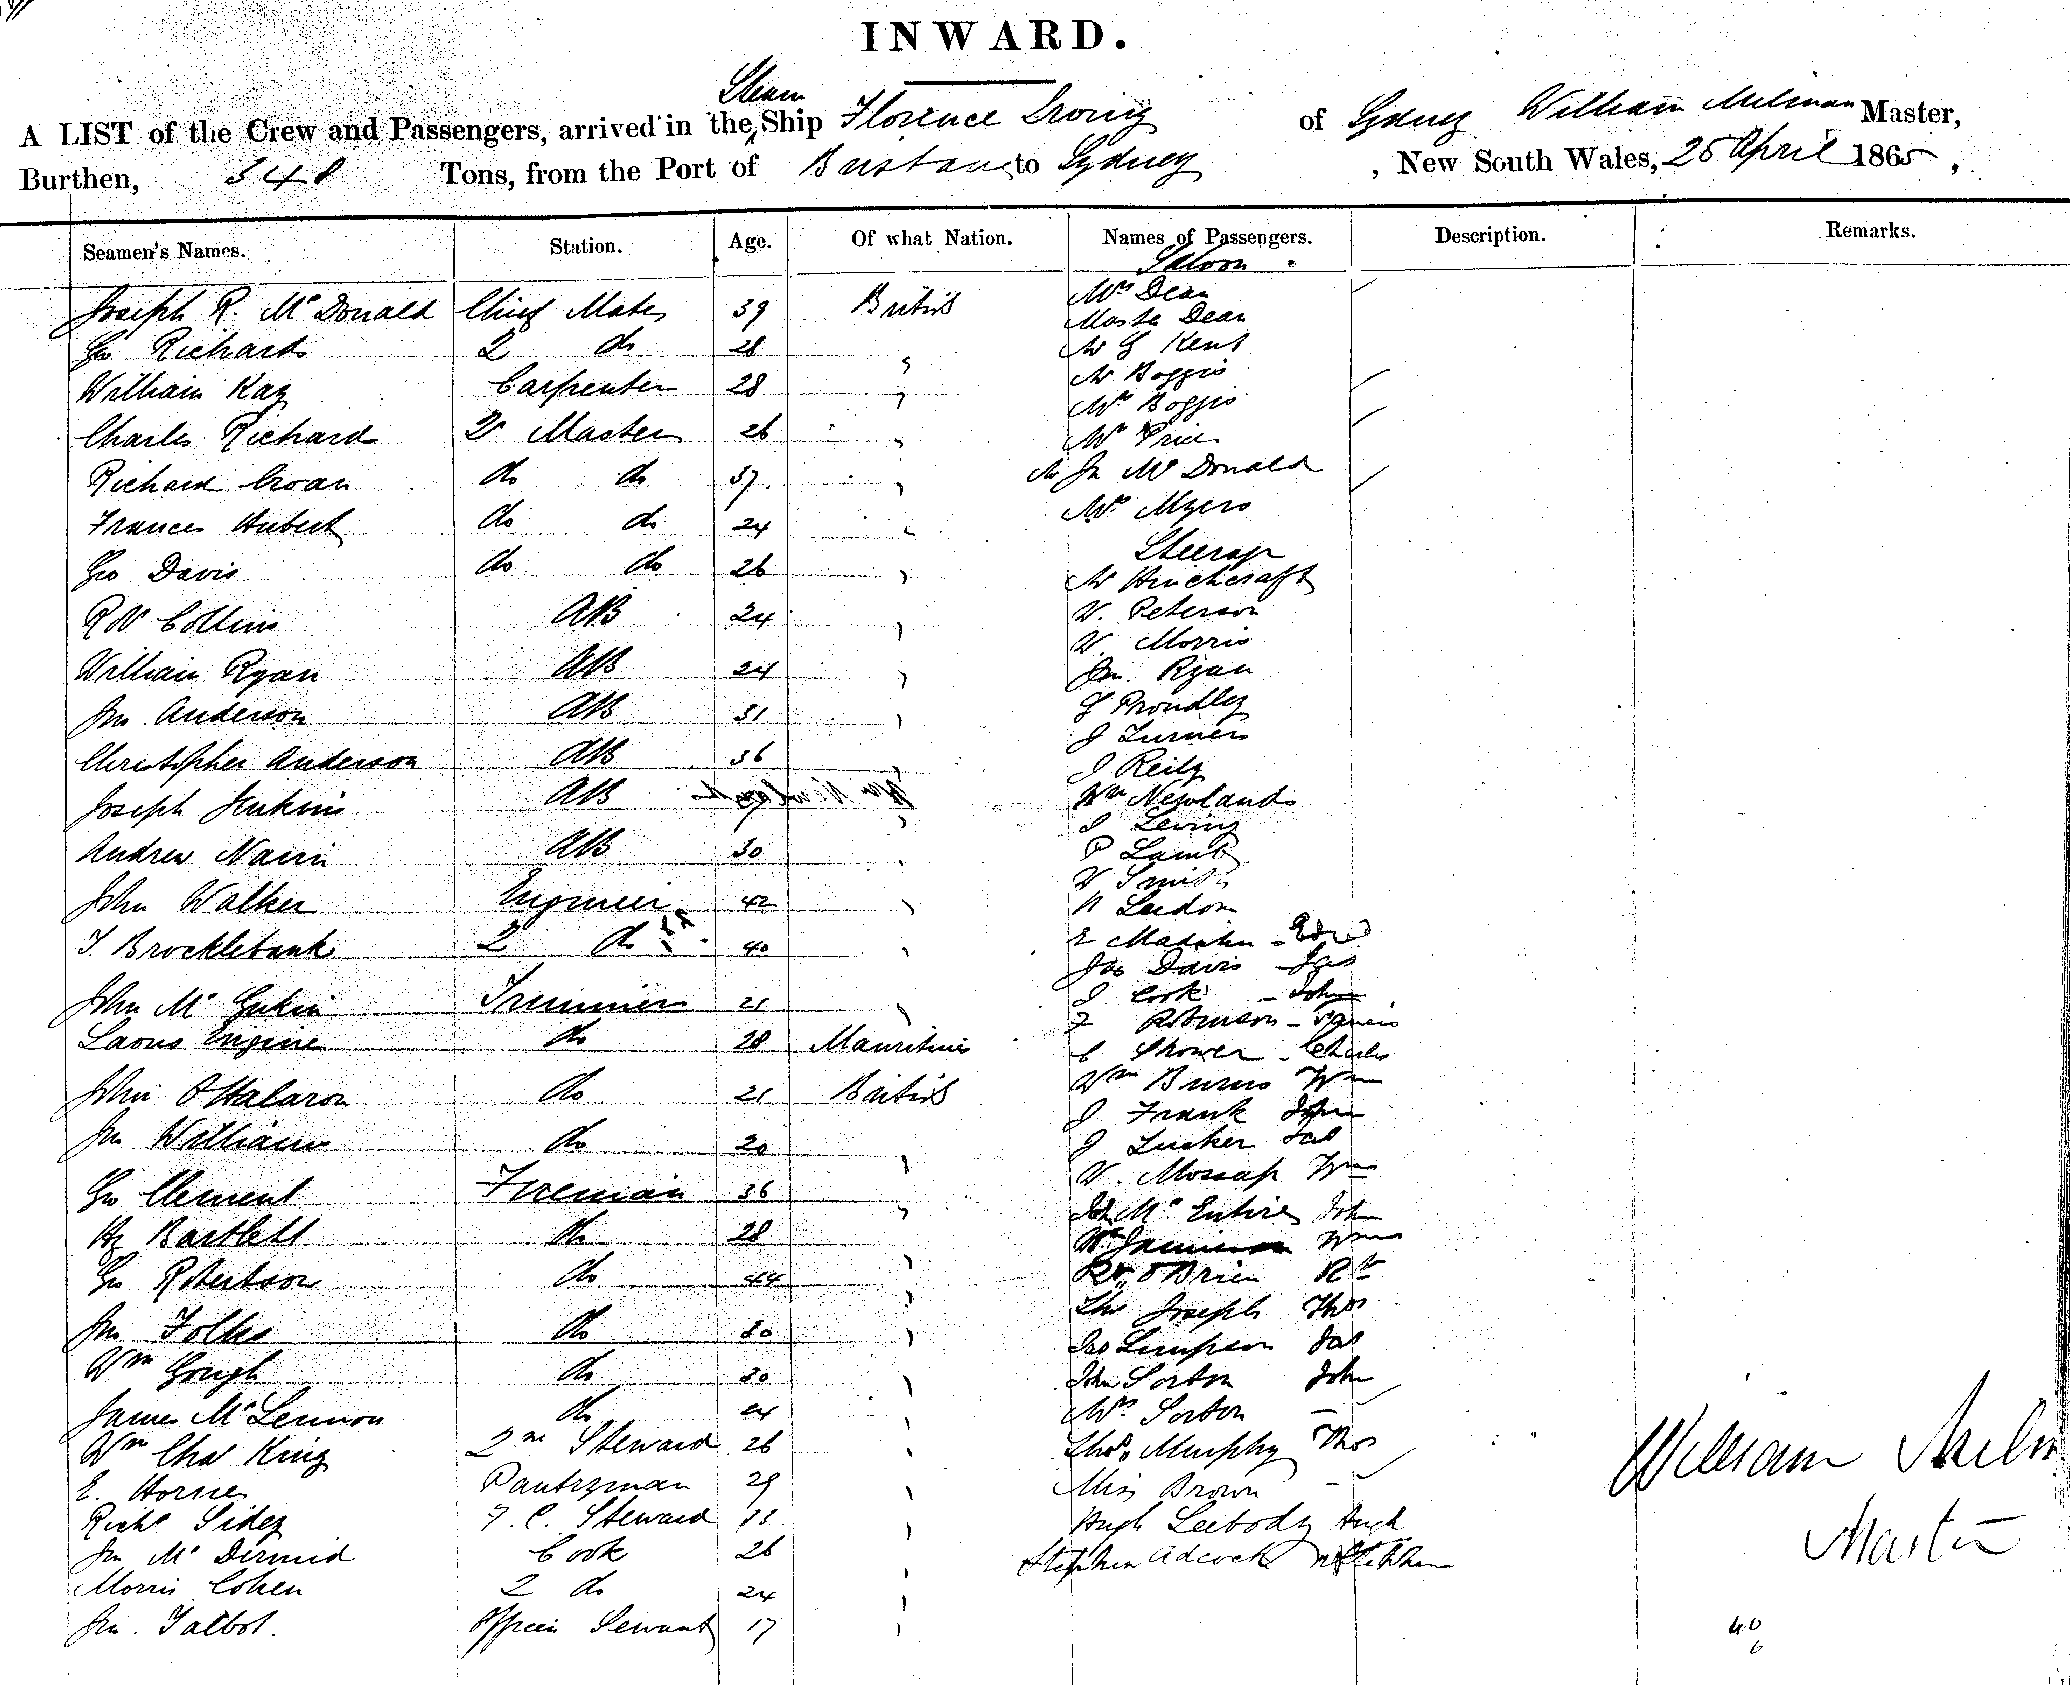 INWARD.
Steam
A LIST of the Crew and Passengers, arrived in the Ship Florence Irving of Sydney William Milman Master,
Burthen, 348 Tons, from the Port of Brisbane to Sydney , New South Wales, 25 April 1865,
Seamen's Names. Station. Age. Of what Nation. Names of Passengers. Description. Remarks.
Saloon
Mrs Dean
Joseph R. McDonald Chief Mate 39 British
Master Dean
Geo Richards 2 do 28 "
Mr G Kent
William Kay Carpenter 28 "
Mr Boggis
Mrs Boggis
Charles Richard Qr Master 26 "
Mrs Price
Richard Croan do do 37 "
Mr Jn McDonald
Frances Hubert do do 24 "
Mrs Myers
Steerage
Geo Davis do do 26 "
Mr Hinchcraft
R W Collins AB 24 "
W. Peterson
W. Morris
William Ryan AB 24 "
Jn. Ryan
Jno. Anderson AB 31 "
G Proudley
J Turner
Christopher Anderson AB 36 "
J Reily
Joseph Jenkins AB "
Wm Newlands
J Leving
Andrew Nairn AB 30 "
P Lamb
W Smith
John Walker Engineer 42 "
T. Brocklebank 2 do 40 "
Jas Davis Jas
J Cook - John
John Mc Trimmer 21 "
F Robinson - Francis
Engine do 28 Mauritius
C Shower - Charles
John O'Halaron do 21 British
Wm Burns Wm
J Frank John
Jn Williams do 20 "
J Tucker Jas
W. Mossap Wm
Geo Clement Fireman 36 "
John McEntire John
Hy Bartlett do 28 "
Wm Jamieson Wm
Geo Robertson do 44 "
Rd O'Brien Rd
Thos Joseph Thos
Jno Folks do 30 "
Jas Simpson Jas
Wm Gough do 30 "
John Sorton John
James McLennon do 24 "
Mrs Sorton -
Wm Chas King 2nd Steward 26 "
Thos Murphy Thos
E. Horne Pantryman 29 "
Miss Brown -
Richd Sidey F. C. Steward "
Hugh Leebody Hugh
Jn McDermid Cook 26 "
Stephen Adcock Stephen
Morris Cohen 2 do 24 "
Jno. Talbot. Officers Servant 17 "
William Milm
Master
40
6